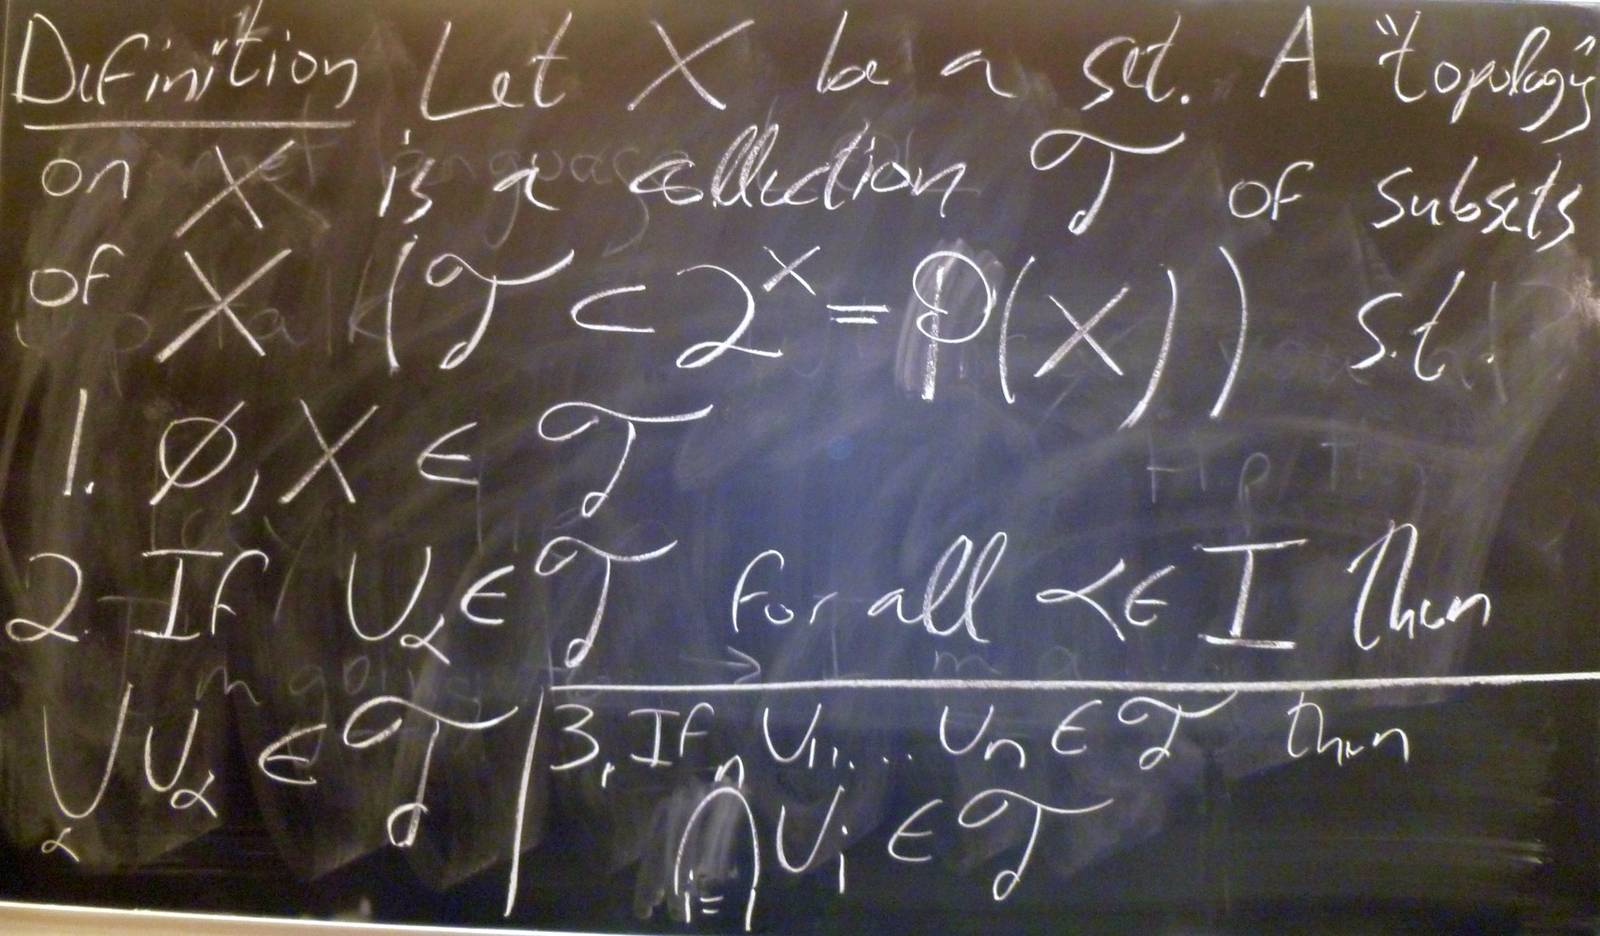 Definition Let X be a set. A "topology"
on X is a collection 𝒯 of subsets
of X (𝒯 ⊂ 2^X = ℘(X)) s.t.
1. ∅, X ∈ 𝒯
2. If U_α ∈ 𝒯 for all α ∈ I then
⋃_α U_α ∈ 𝒯
3. If U_1, ... U_n ∈ 𝒯 then
⋂_{i=1}^n U_i ∈ 𝒯